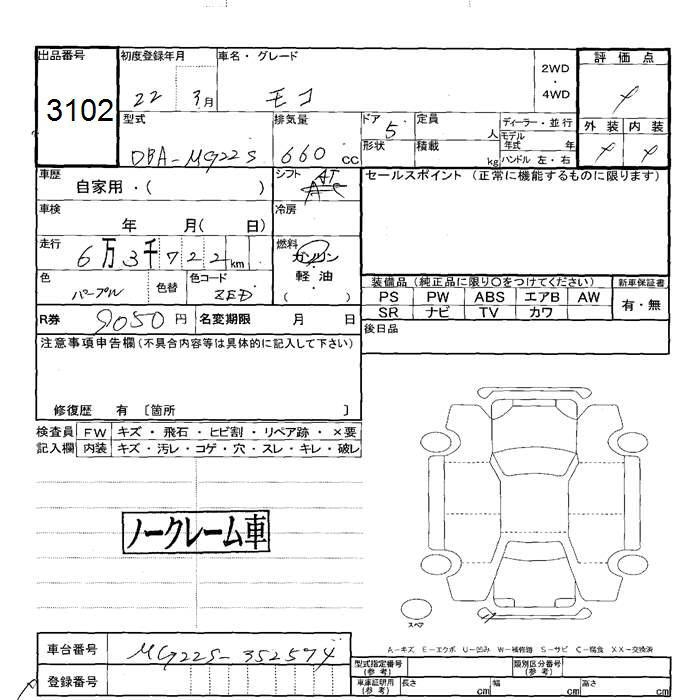 出品番号 初度登録年月 車名・グレード 評価点
3102 22 3月 モコ 2WD・4WD
型式 排気量 ドア 定員 ディーラー・並行 外装 内装
DBA-MG22S 660 CC 5 人 モデル年式 年
形状 積載 kg ハンドル 左・右
車歴 自家用・( ) シフト AT セールスポイント(正常に機能するものに限ります)
車検 年 月( 日) 冷房 AC
走行 6万3千722km 燃料 ガソリン
軽油
( )
色 パープル 色替 色コード ZED
装備品(純正品に限り○をつけてください) 新車保証書
PS PW ABS エアB AW 有・無
SR ナビ TV カワ
R券 9050円 名変期限 月 日 後日品
注意事項申告欄(不具合内容等は具体的に記入して下さい)
修復歴 有 〔箇所 〕
検査員 FW キズ・飛石・ヒビ割・リペア跡・×要
記入欄 内装 キズ・汚レ・コゲ・穴・スレ・キレ・破レ
ノークレーム車
スペア
A-キズ E-エクボ U-凹み W-補修跡 S-サビ C-腐食 XX-交換済
車台番号 MG22S-352574
登録番号
型式指定番号(参考) 類別区分番号(参考)
車庫証明用(参考) 長さ cm 幅 cm 高さ cm